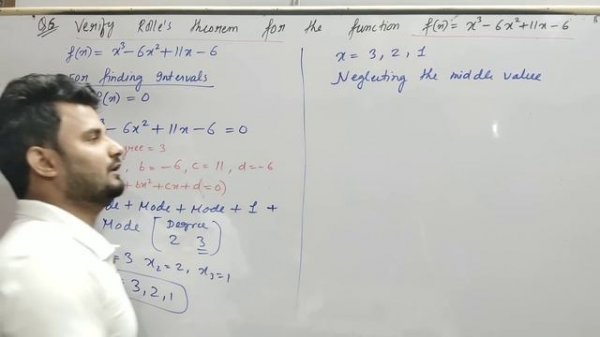 Q5 Verify Rolle's theorem for the function f(x) = x³ - 6x² + 11x - 6
f(x) = x³ - 6x² + 11x - 6
For finding Intervals
f(x) = 0
- 6x² + 11x - 6 = 0
= 3
b = -6, c = 11, d = -6
+ bx² + cx + d = 0)
+ Mode + Mode + 1 +
Mode [ Degree
2 3
= 3 x₂ = 2, x₃ = 1
= 3, 2, 1
x = 3, 2, 1
Neglecting the middle value